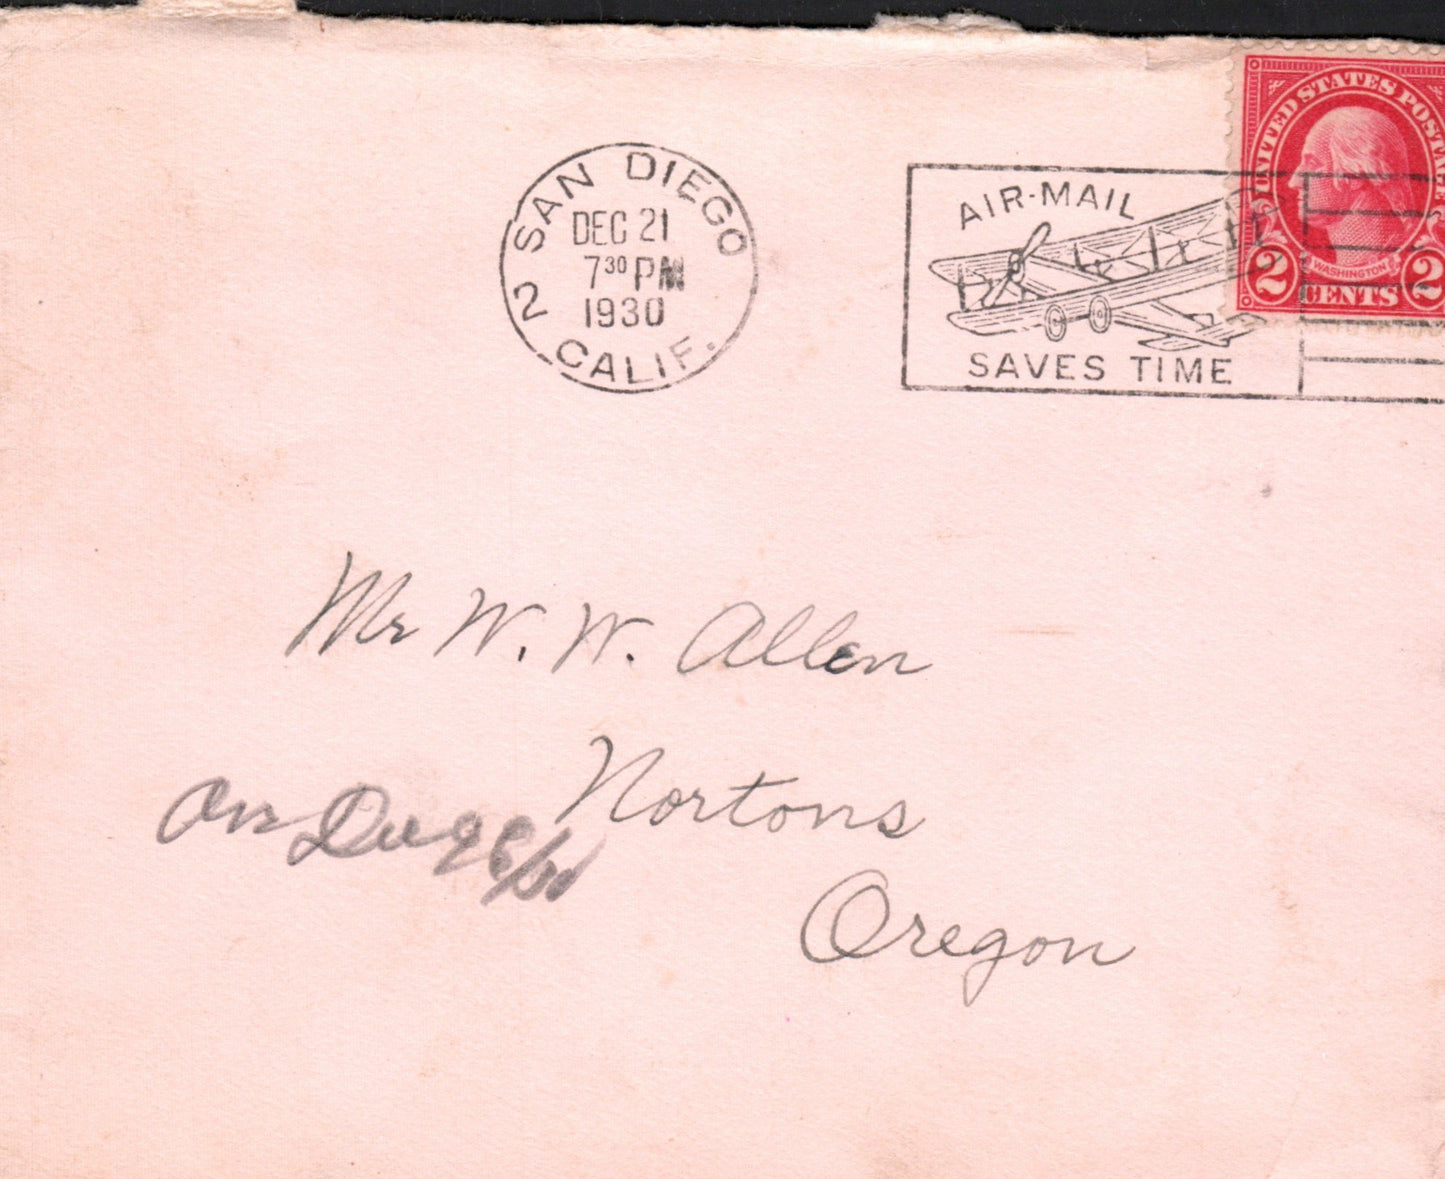 SAN DIEGO
DEC 21
7 30 PM
1930
2 CALIF.
AIR-MAIL
SAVES TIME
UNITED STATES POSTAGE
WASHINGTON
2 CENTS 2
Mr W. W. Allen
Nortons
Oregon